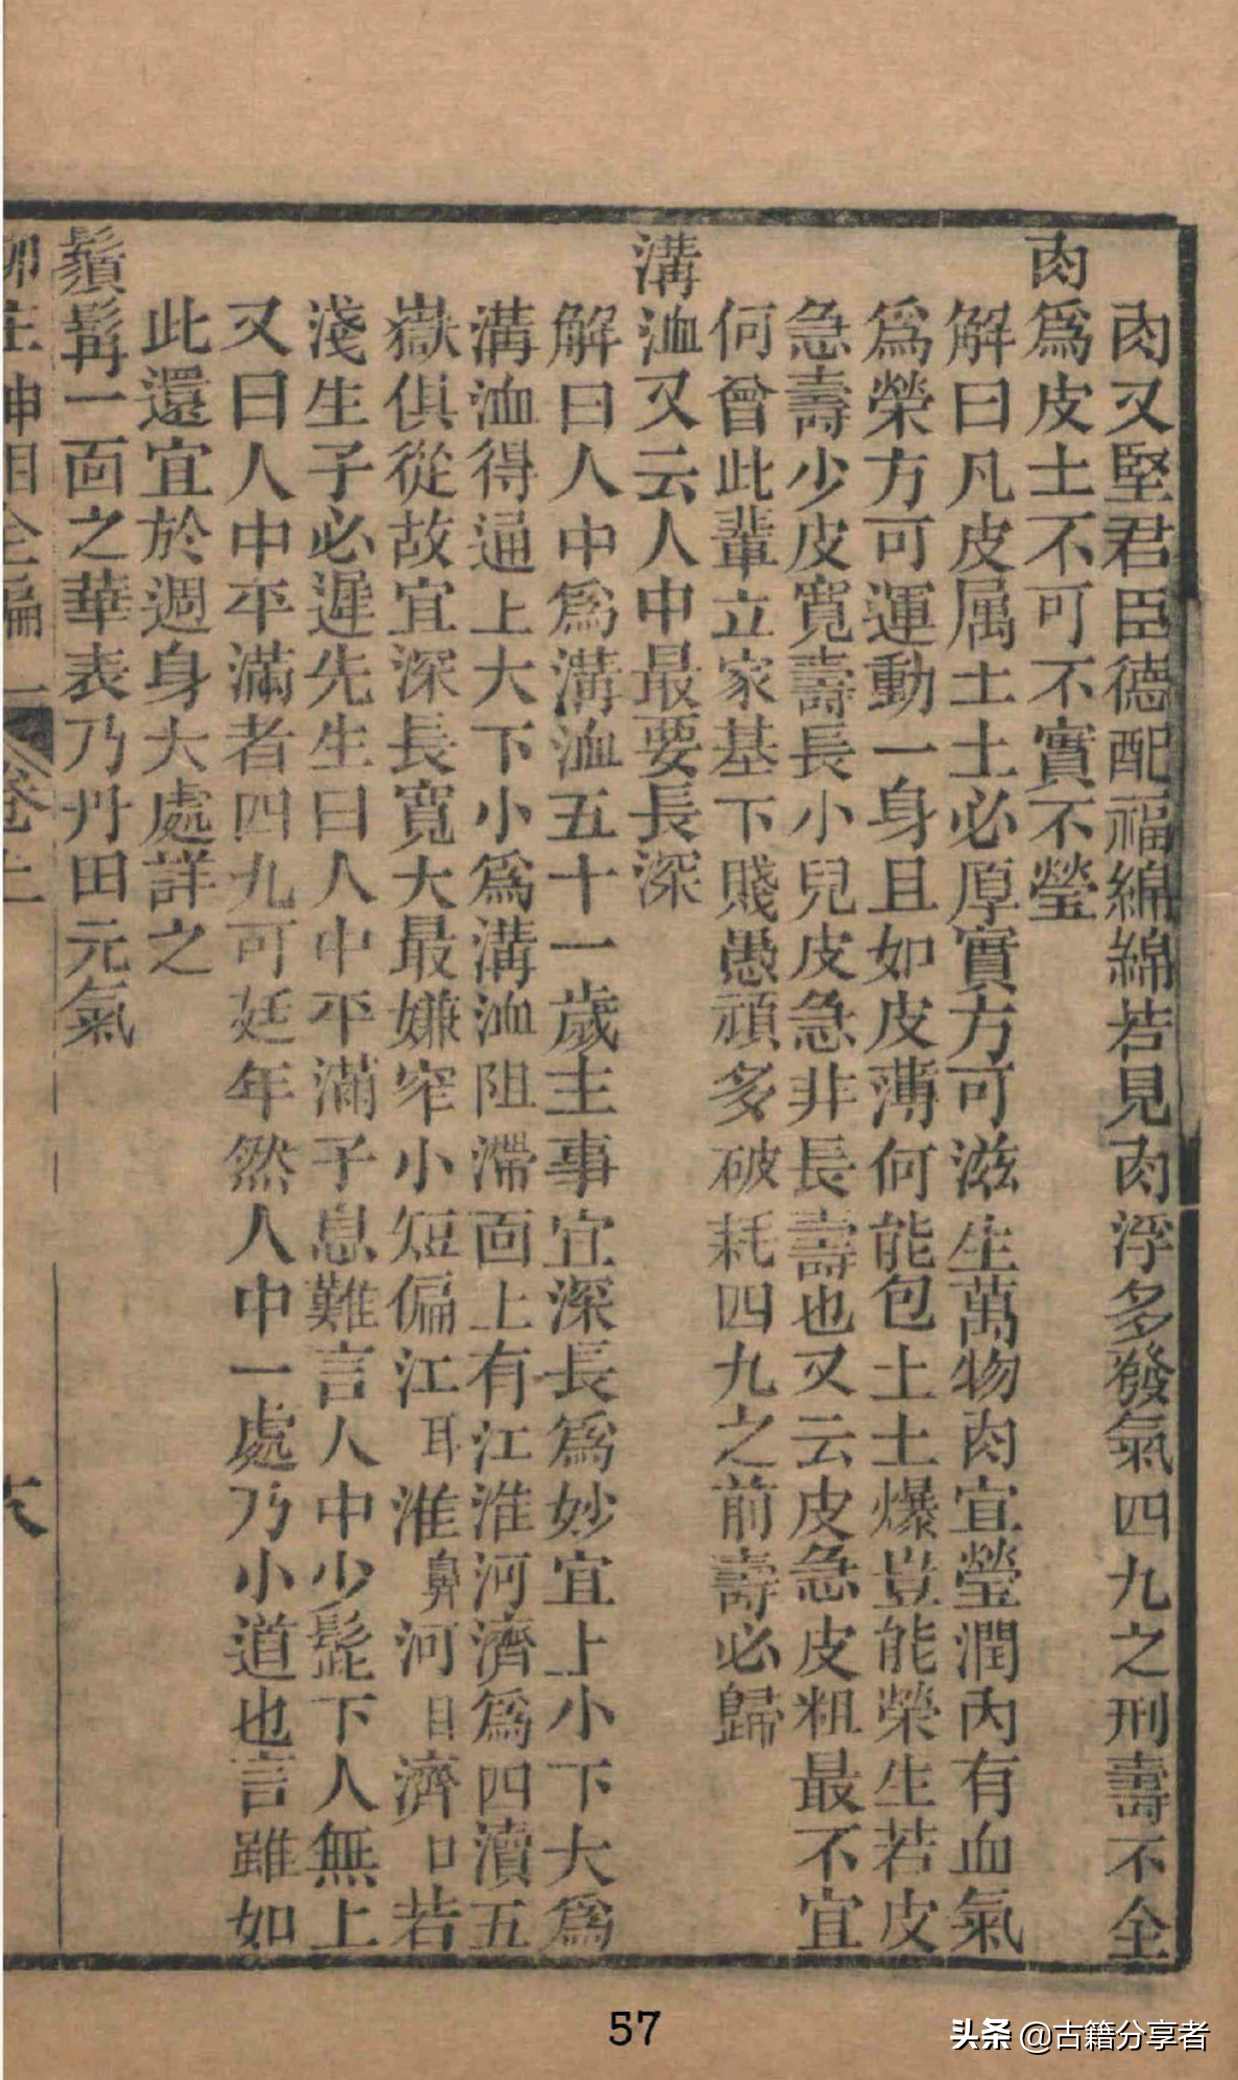 肉又堅君臣德配福綿綿若見肉浮多發氣四九之刑壽不全
肉爲皮土不可不實不瑩
解曰凡皮属土土必厚實方可滋生萬物肉宜瑩潤內有血氣
爲榮方可運動一身且如皮薄何能包土土爆豈能榮生若皮
急壽少皮寬壽長小兒皮急非長壽也又云皮急皮粗最不宜
何曾此輩立家基下賤愚頑多破耗四九之前壽必歸
溝洫又云人中最要長深
解曰人中爲溝洫五十一歲主事宜深長爲妙宜上小下大爲
溝洫得通上大下小爲溝洫阻滯面上有江淮河濟爲四瀆五
嶽俱從故宜深長寬大最嫌窄小短偏江耳淮鼻河目濟口若
淺生子必遲先生曰人中平滿子息難言人中少髭下人無上
又曰人中平滿者四九可延年然人中一處乃小道也言雖如
此還宜於週身大處詳之
鬚髯一面之華表乃丹田元氣
柳庄神相全編 卷上 六
57
头条 @古籍分享者